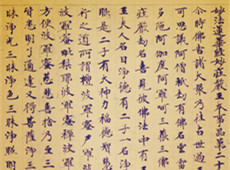 妙法蓮華經妙莊嚴王本事品第二十
尒時佛告諸大衆乃往古世過
可思議阿僧祇劫有佛名雲雷
多陀阿伽度阿羅訶三藐三佛
莊嚴劫名憙見彼佛法中有王
王夫人名曰淨德有二子一名
眼是二子有大神力福德智
行之道所謂檀波羅蜜尸羅
波羅蜜毗梨耶波羅蜜禪波羅
方便波羅蜜慈悲喜捨乃至三
皆悉明了通達又得菩薩淨三
昧淨光三昧淨色三昧淨照明